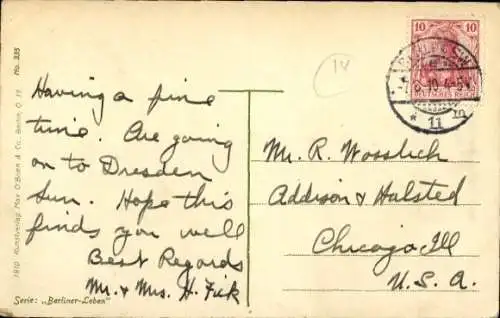 Having a fine
time. Are going
on to Dresden
Sun. Hope this
finds you well
Best Regards
Mr. & Mrs. H. Fick
Mr. R. Wosslich
Addison & Halsted
Chicago Ill
U.S.A.
10 10
DEUTSCHES REICH
* 11 m
14
1910 Kunstverlag Max O'Brien & Co. Berlin, O 17 No. 235
Serie: „Berliner-Leben"